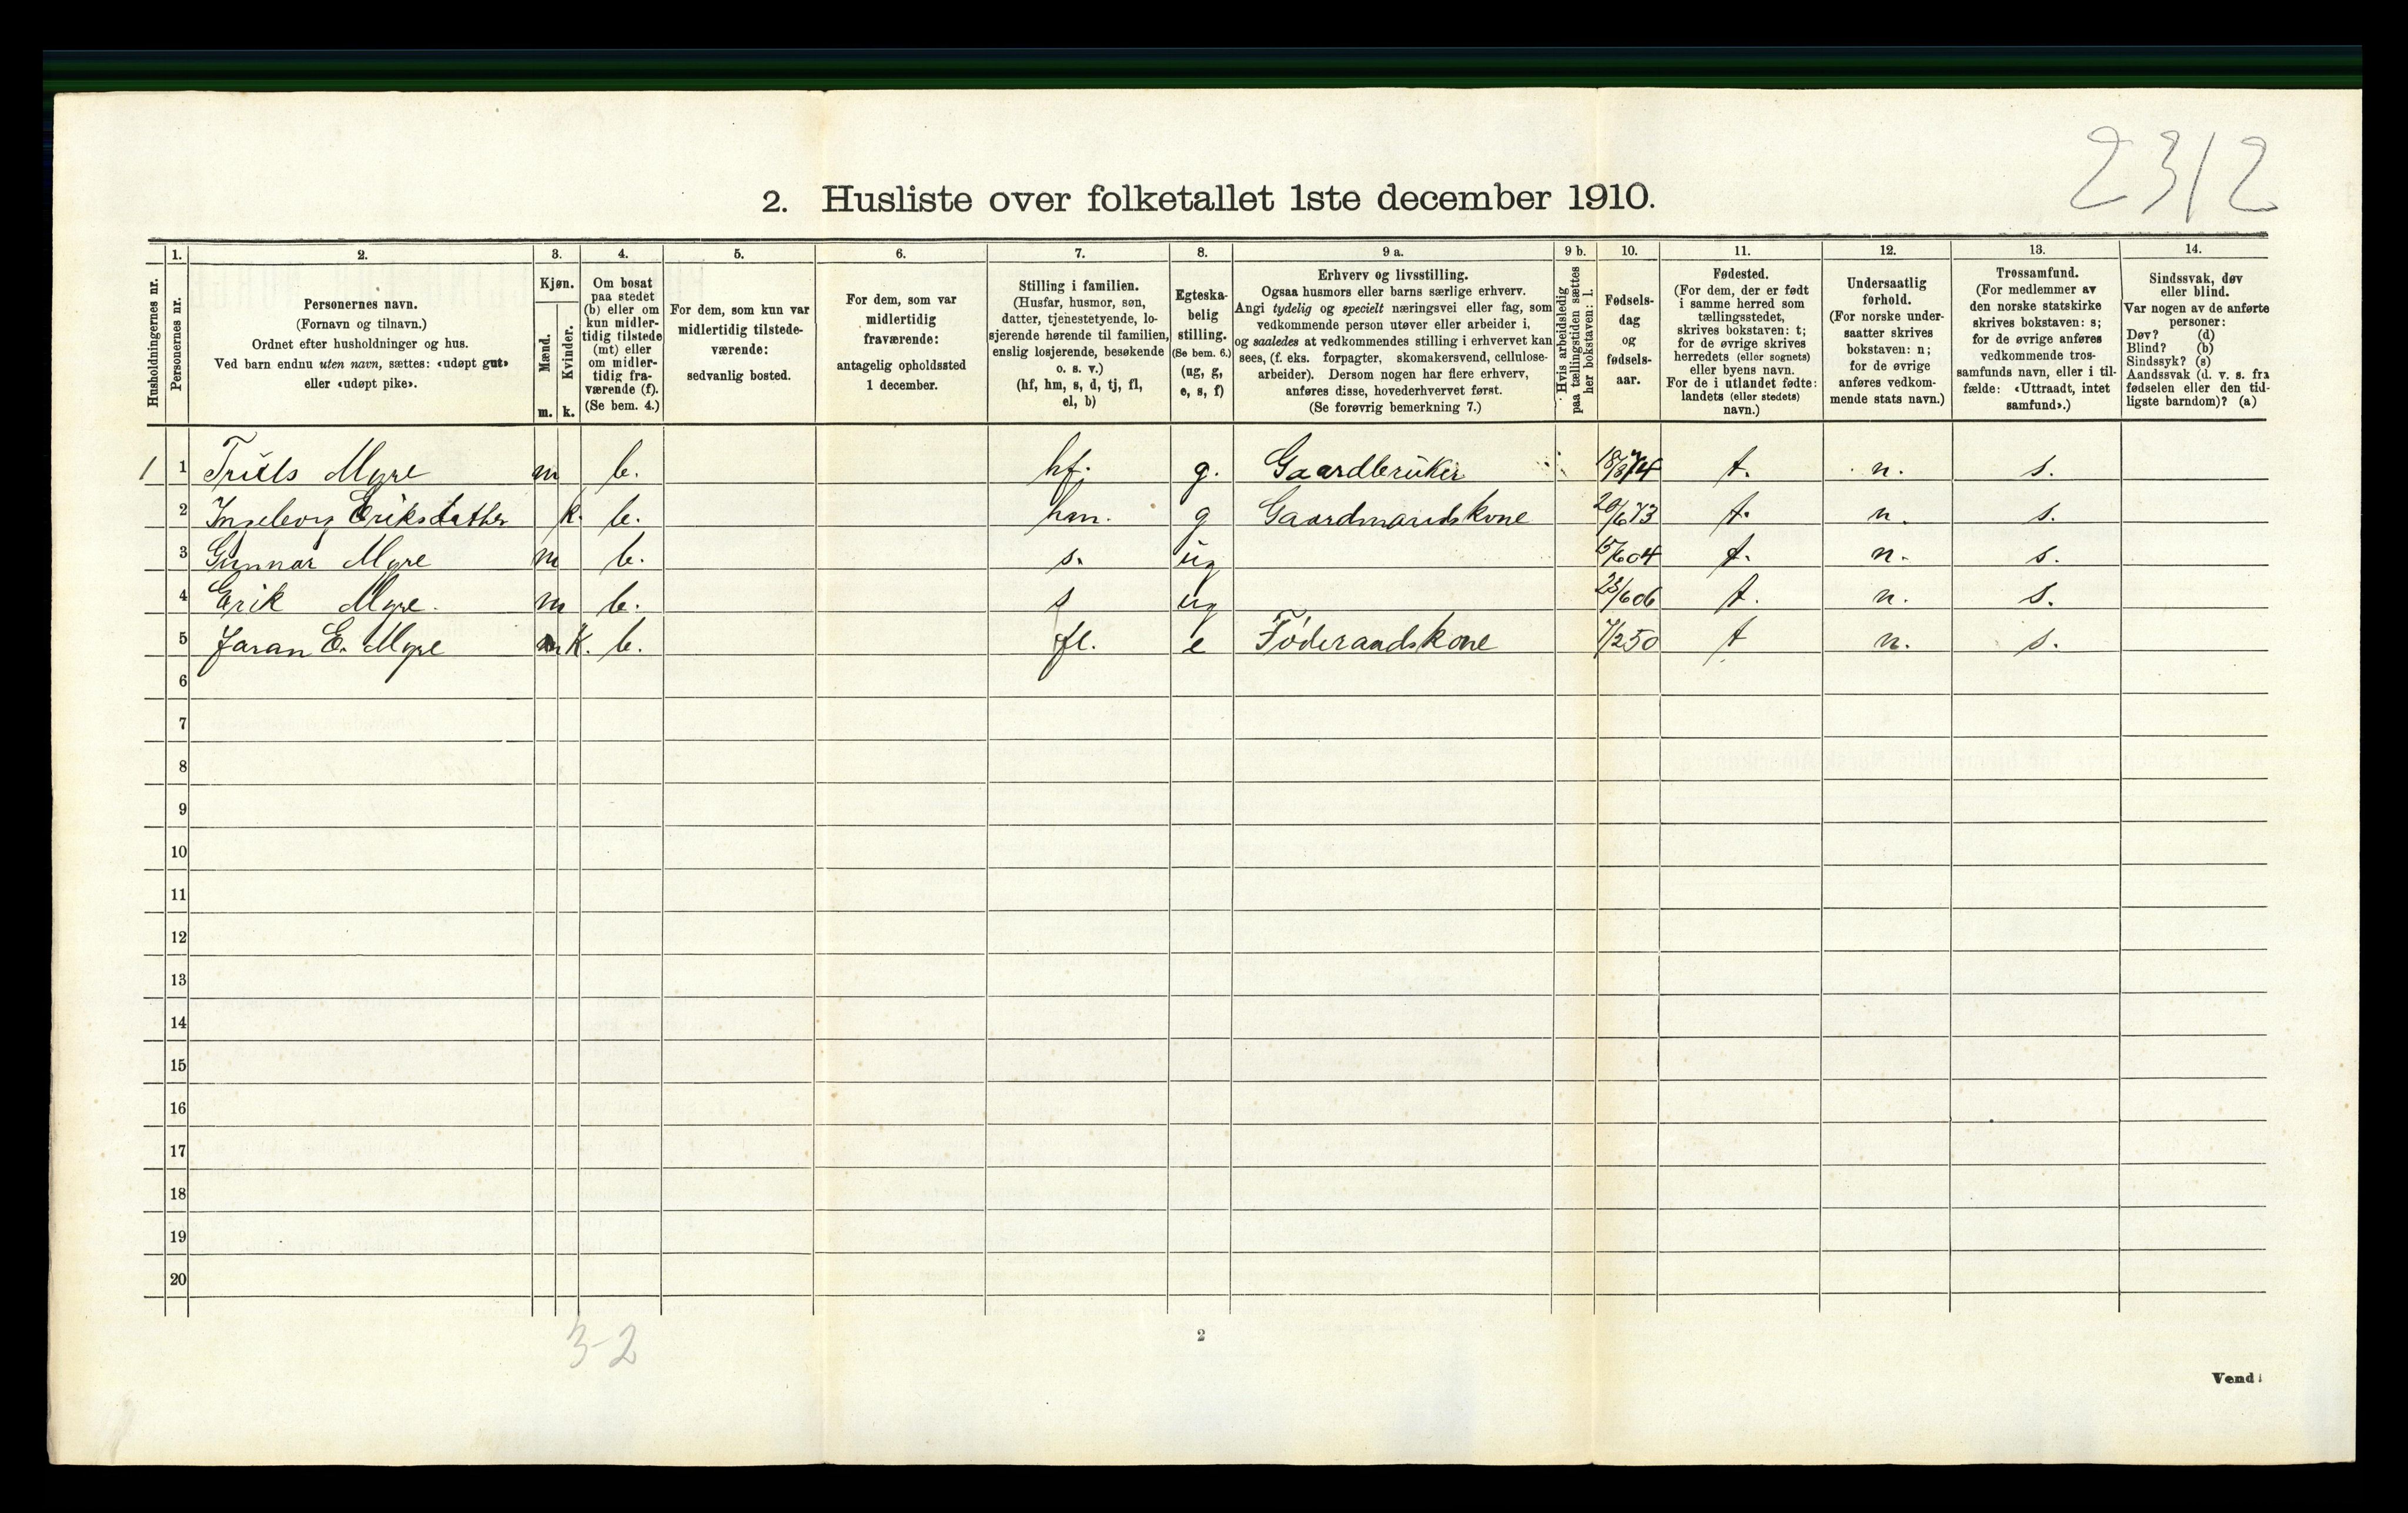 2312
2. Husliste over folketallet 1ste december 1910.
Husholdningernes nr.
1. Personernes nr.
2. Personernes navn.
(Fornavn og tilnavn.)
Ordnet efter husholdninger og hus.
Ved barn endnu uten navn, sættes: «udøpt gut»
eller «udøpt pike».
3. Kjøn.
Mænd. m.
Kvinder. k.
4. Om bosat
paa stedet
(b) eller om
kun midler-
tidig tilstede
(mt) eller
om midler-
tidig fra-
værende (f).
(Se bem. 4.)
5. For dem, som kun var
midlertidig tilstede-
værende:
sedvanlig bosted.
6. For dem, som var
midlertidig
fraværende:
antagelig opholdssted
1 december.
7. Stilling i familien.
(Husfar, husmor, søn,
datter, tjenestetyende, lo-
sjerende hørende til familien,
enslig losjerende, besøkende
o. s. v.)
(hf, hm, s, d, tj, fl,
el, b)
8. Egteska-
belig
stilling.
(Se bem. 6.)
(ug, g,
e, s, f)
9 a. Erhverv og livsstilling.
Ogsaa husmors eller barns særlige erhverv.
Angi tydelig og specielt næringsvei eller fag, som
vedkommende person utøver eller arbeider i,
og saaledes at vedkommendes stilling i erhvervet kan
sees, (f. eks. forpagter, skomakersvend, cellulose-
arbeider). Dersom nogen har flere erhverv,
anføres disse, hovederhvervet først.
(Se forøvrig bemerkning 7.)
9 b. Hvis arbeidsledig
paa tællingstiden sættes
her bokstaven: l.
10. Fødsels-
dag
og
fødsels-
aar.
11. Fødested.
(For dem, der er født
i samme herred som
tællingsstedet,
skrives bokstaven: t;
for de øvrige skrives
herredets (eller sognets)
eller byens navn.
For de i utlandet fødte:
landets (eller stedets)
navn.)
12. Undersaatlig
forhold.
(For norske under-
saatter skrives
bokstaven: n;
for de øvrige
anføres vedkom-
mende stats navn.)
13. Trossamfund.
(For medlemmer av
den norske statskirke
skrives bokstaven: s;
for de øvrige anføres
vedkommende tros-
samfunds navn, eller i til-
fælde: «Uttraadt, intet
samfund».)
14. Sindssvak, døv
eller blind.
Var nogen av de anførte
personer:
Døv? (d)
Blind? (b)
Sindssyk? (s)
Aandssvak (d. v. s. fra
fødselen eller den tid-
ligste barndom)? (a)
1 1 Truls Myre m b. hf. g. Gaardbruker 18/8 74 t. n. s.
2 Ingeborg Eriksdatter k. b. hm. g Gaardmandskone 20/6 73 t. n. s.
3 Gunnar Myre m b. s. ug 15/6 04 t. n. s.
4 Erik Myre. m b. s ug 23/6 06 t. n. s.
5 Jaran E. Myre K. b. fl. e Føderaadskone 7/2 50 t n. s.
6
7
8
9
10
11
12
13
14
15
16
17
18
19
20
3-2
2
Vend!